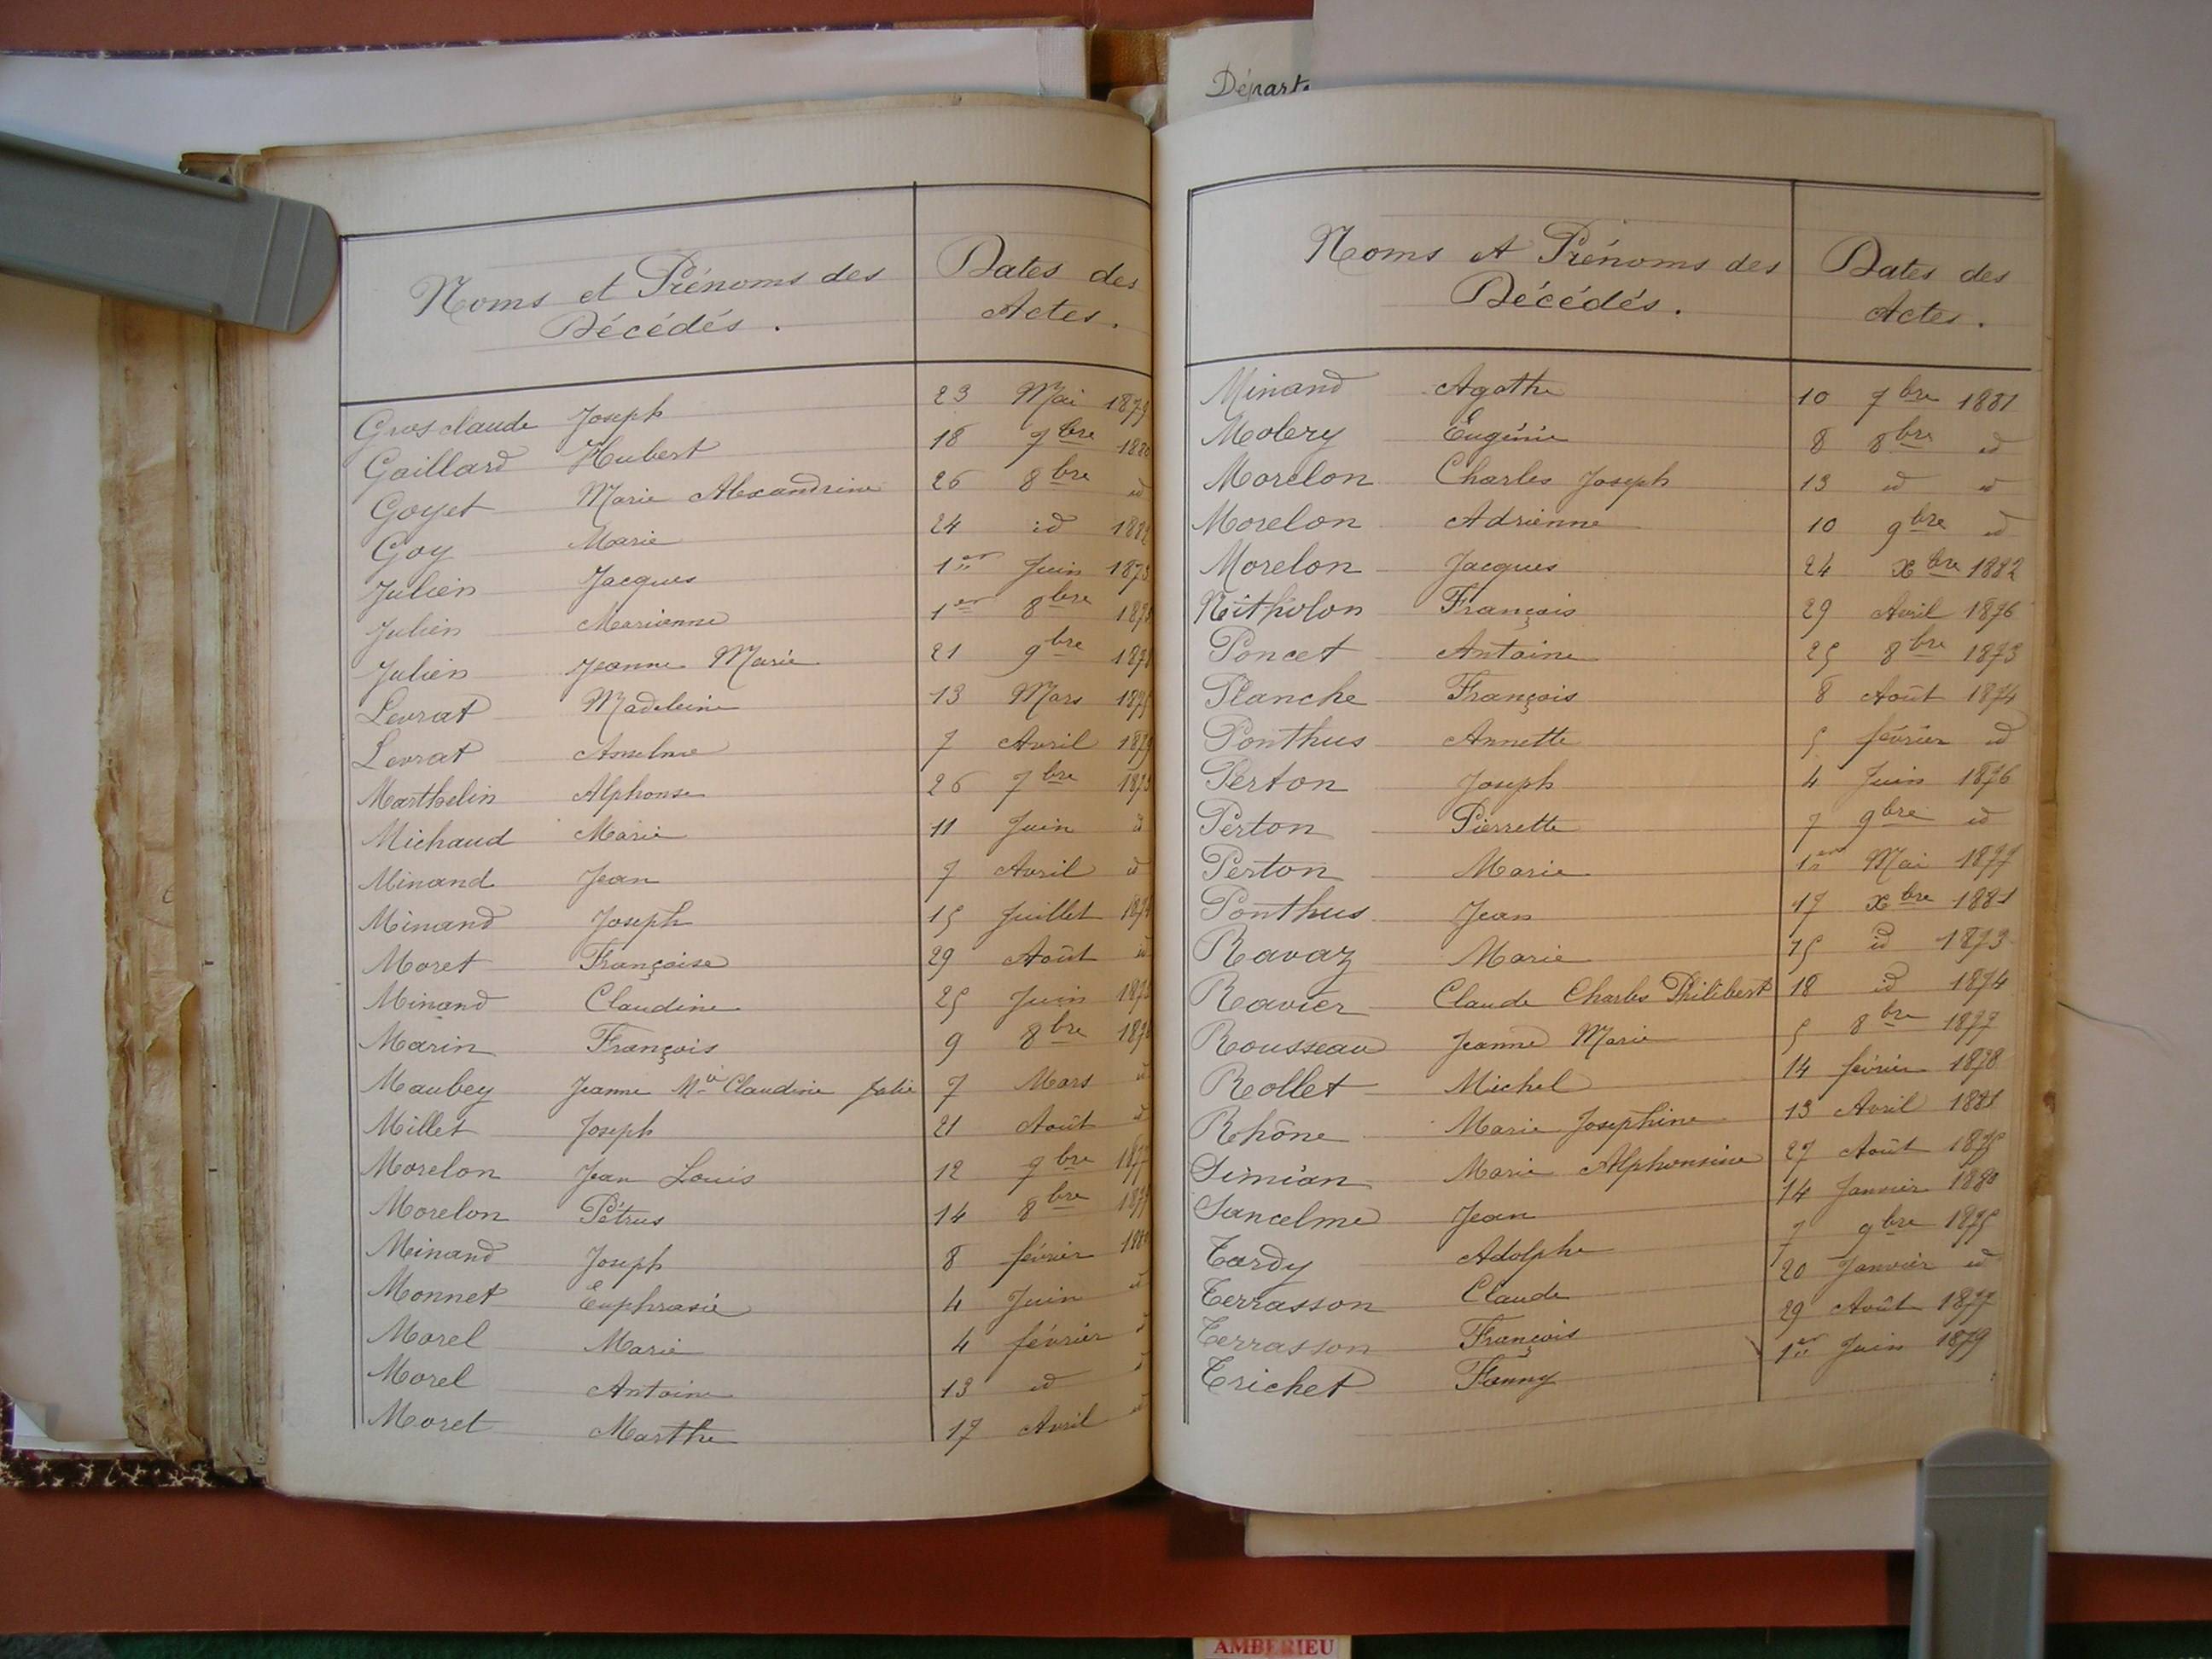 Départ
Noms et Prénoms des
Décédés.
Dates des
Actes.
Grosclaude Joseph 23 Mai 1879
Gaillard Hubert 18 7bre 1880
Goyet Marie Alexandrine 26 8bre id
Goy Marie 24 id 1882
Julien Jacques 1er Juin 1873
Julien Marienne 1er 8bre
Julien Jeanne Marie 21 9bre
Levrat Madeleine 13 Mars 1875
Levrat Anselme 7 Avril 1879
Marthelin Alphonse 26 7bre 1873
Michaud Marie 11 Juin id
Minand Jean 7 Avril id
Minand Joseph 15 Juillet 1874
Moret Françoise 29 Août id
Minand Claudine 25 Juin
Marin François 9 8bre 1876
Maubey Jeanne Mie Claudine Julie 7 Mars id
Millet Joseph 21 Août id
Morelon Jean Louis 12 9bre 1877
Morelon Pétrus 14 8bre
Minand Joseph 8 février
Monnet Euphrasie 4 Juin id
Morel Marie 4 février id
Morel Antoine 13 id id
Moret Marthe 17 Avril id
Noms et Prénoms des
Décédés.
Dates des
Actes.
Minand Agathe 10 7bre 1881
Molery Eugénie 8 8bre id
Morelon Charles Joseph 13 id id
Morelon Adrienne 10 9bre id
Morelon Jacques 24 xbre 1882
Nitholon François 29 Avril 1876
Poncet Antoine 25 8bre 1873
Planche François 8 Août 1874
Ponthus Annette 5 février id
Perton Joseph 4 Juin 1876
Perton Pierrette 7 9bre id
Perton Marie 1er Mai 1877
Ponthus Jean 17 xbre 1881
Ravaz Marie 15 id 1873
Ravier Claude Charles Philibert 18 id 1874
Rousseau Jeanne Marie 5 8bre 1877
Rollet Michel 14 février 1878
Rhône Marie Josephine 13 Avril 1881
Simian Marie Alphonsine 27 Août 1875
Sancelme Jean 14 Janvier 1880
Tardy Adolphe 7 9bre 1875
Terrasson Claude 20 Janvier id
Terrasson François 29 Août 1877
Trichet Fanny 1er Juin 1879
AMBERIEU